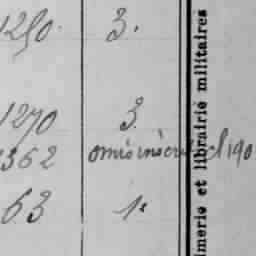 1250. 3.
1270 3.
1362 omis inscrit cl 190
63 1e
imerie et librairie militaires